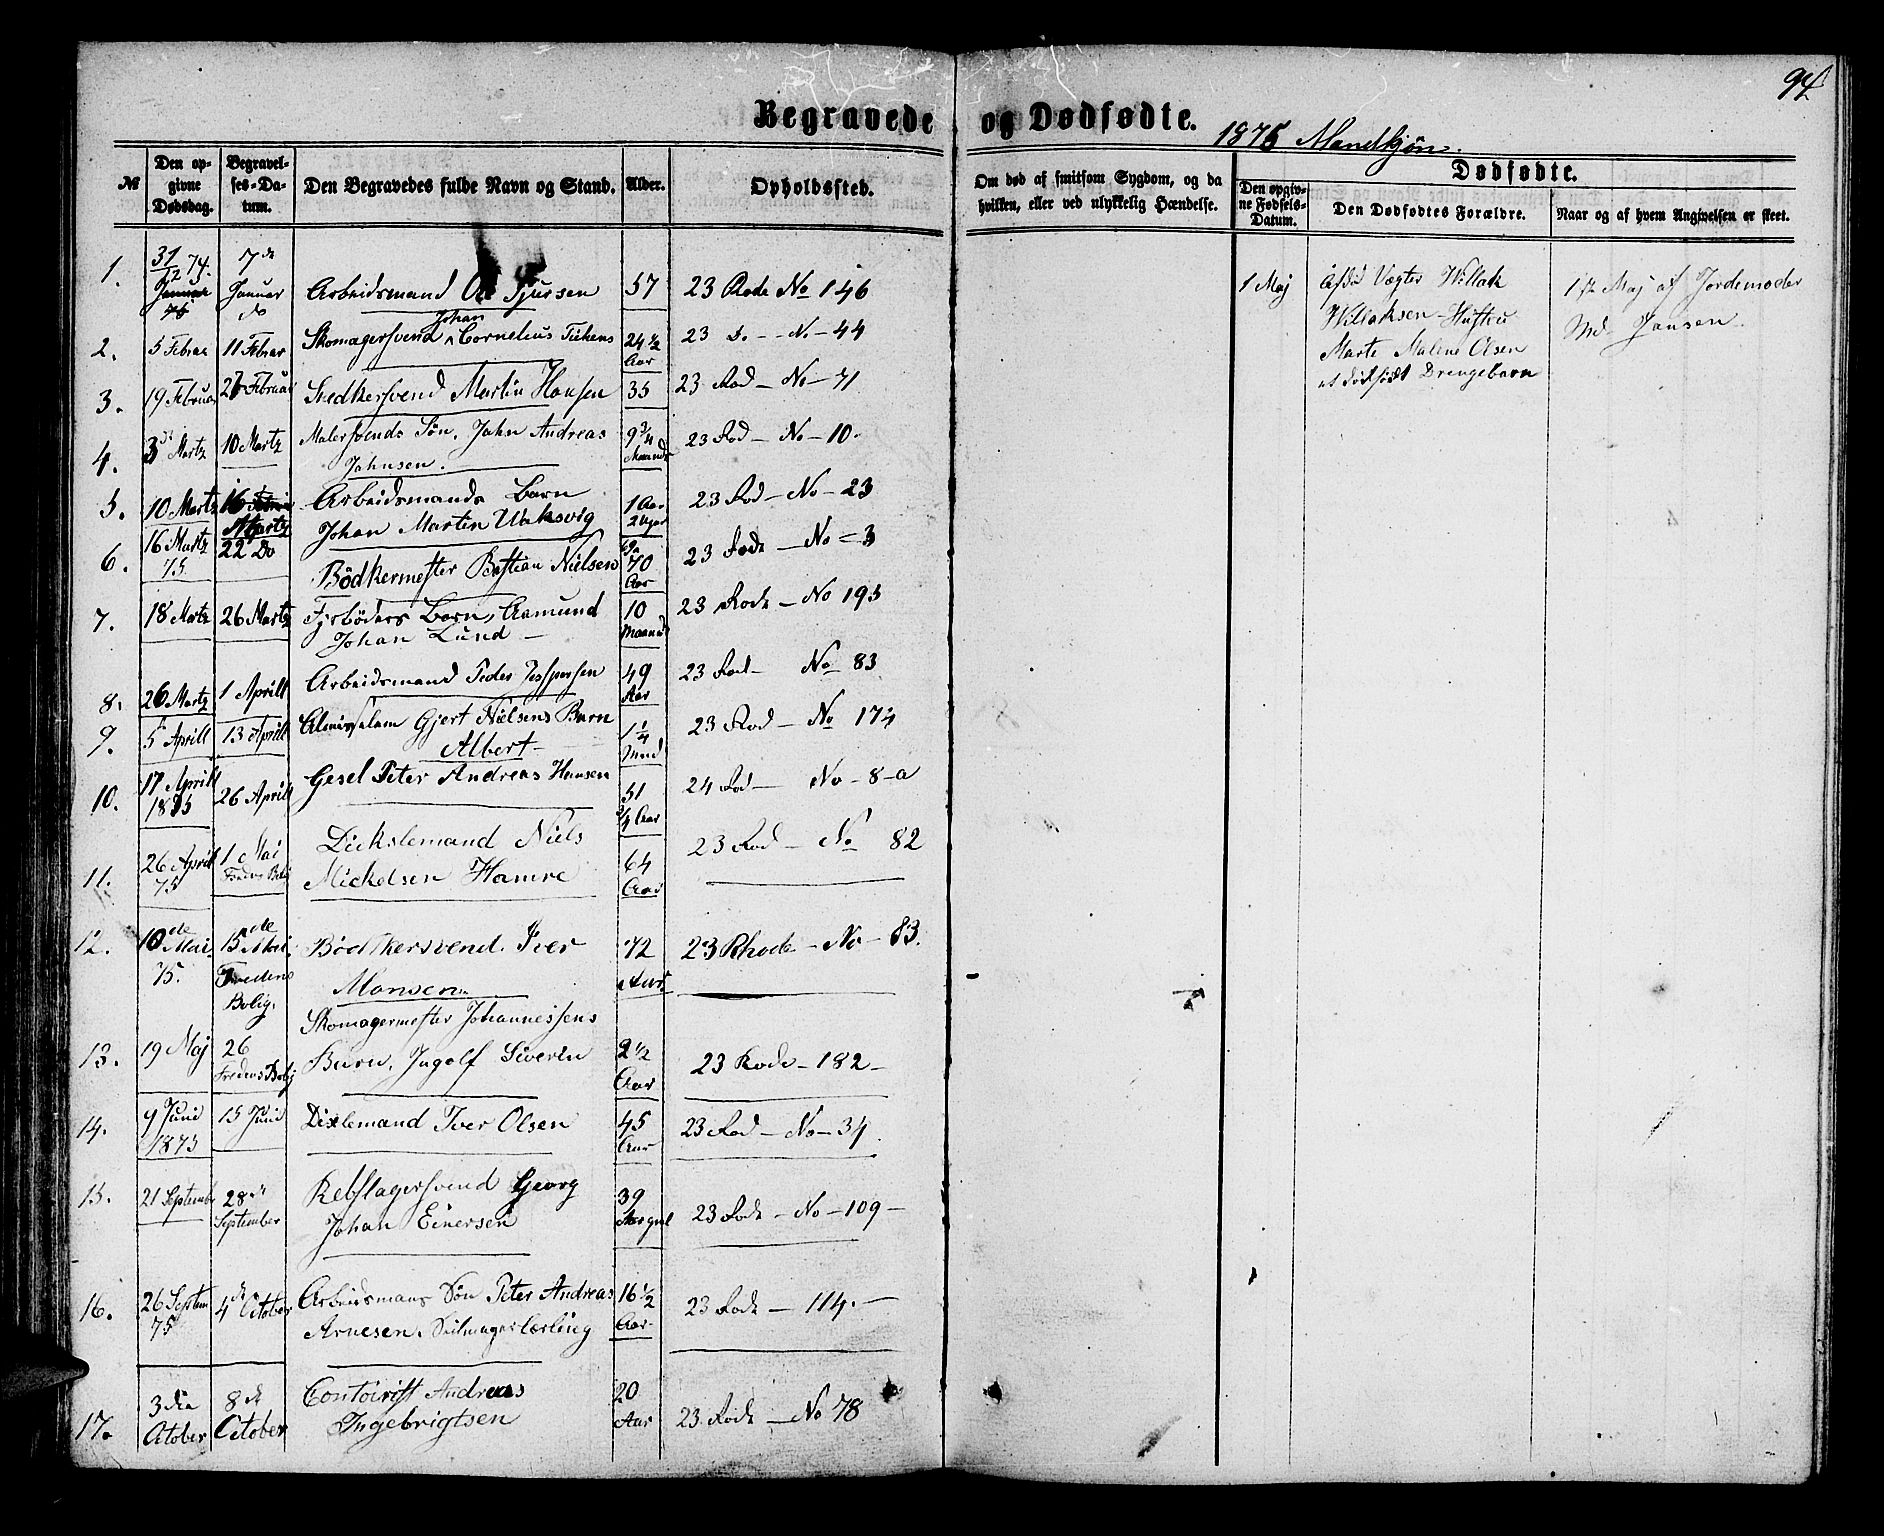 94
Begravede og Dødfødte.
1875 Mandkjøn.
№
Den opgivne Dødsdag.
Begravelses-Datum.
Den Begravedes fulde Navn og Stand.
Alder.
Opholdssted.
Om død af smitsom Sygdom, og da hvilken, eller ved ulykkelig Hændelse.
Dødfødte.
Den opgivne Fødsels-Datum.
Den Dødfødtes Forældre.
Naar og af hvem Angivelsen er skeet.
1. 31/12 74. Januar 75 7de Januar Arbeidsmand Ole Sjursen 57 23 Rode No 146
do
Johan
2. 5 Febrar 11 Febrar Skomagersvend Cornelius 24 1/2 Aar 23 D. - - No - 44
3. 19 Februar 27 Februar Snedkersvend Martin Hansen 35 23 Rod - No - 71
4. 3de Martz 10 Martz Malersvends Søn, John Andreas 9 3/4 Maande 23 Rod - No - 10.
Johnsen.
5. 10 Martz 16 Martz Arbeidsmands Barn 1 Aar 2 Uger 23 Rod - No - 23
Johan Martin
6. 16 Martz 75. 22 Do Bödkermester Bastian Nielsen 70 Aar 23 Rode - No - 3
7. 18 Martz 26 Martz Fyrböders Barn, Aamund 10 Maaned 23 Rode - No 193
Johan Lund -
8. 26 Martz 1 Aprill Arbeidsmand Peder Jespersen 49 Aar 23 Rod - No 83
9. 5 Aprill 13 Aprill Almisselam Gjert Nielsens Barn 1 1/4 Mnd 23 Rod - No 174
Albert -
10. 17 Aprill 1875 26 Aprill Gesel Peter Andreas Hansen 51 3/4 Aar 24 Rod - No - 8 - a
11. 26 Aprill 75 1 Mai Dikslemand Niels 64 Aar 23 Rod - No 82
Mickelsen Hamre
12. 10de Mai 75. 15de Mai. Fredens Bolig. Bödkersvend. Iver 72 Aar 23 Rhode - No - 83.
Monsen.
Skomagermester Johannessens
13. 19 Maj 26 Fredens Bolig Barn, Ingolf Siverin 2 1/2 Aar 23 Rode - 182 -
14. 9 Juni 1875 15 Juni Dixlemand Iver Olsen 45 Aar 23 Rod - No - 34
15. 21 September 28de September Rebslagersvend Georg 39 Aar gml 23 Rode - No - 109 -
Johan Einersen
16. 26 Septem 75 4de October Arbeidsmans Søn Peter Andreas 16 1/2 Aar 23 Rode - 114. -
Arnesen. Seilmagerlærling
17. 3die October 8de October Contoirist Andreas 20 Aar 23 Rode - No 78
Ingebrigtsen
1 Maj
Vægter Willak
Willaksen Hustru
Marte Malene Olsen
et dødfødt Drengebarn
Maj af Jordemoder
Md. Jansen.